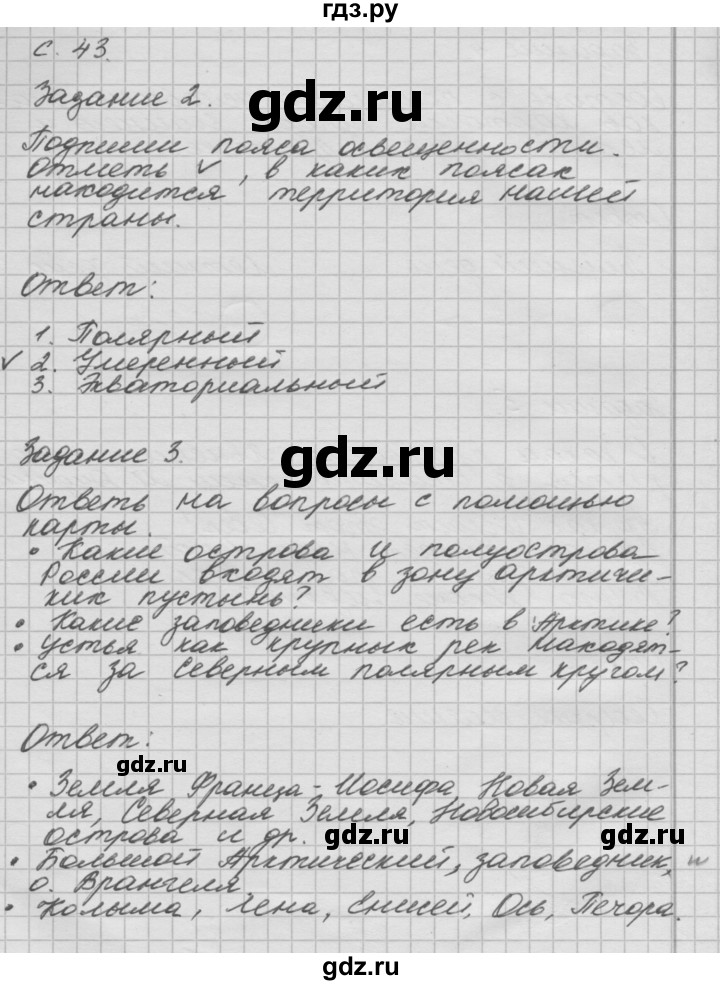 гдз.ру
с. 43.
Задание 2.
gdz.ru
Подпиши пояса освещенности.
Отметь ✓, в каких поясах
находится территория нашей
страны.
Ответ:
1. Полярный
✓ 2. Умеренный
3. Экваториальный
Задание 3.
gdz.ru
Ответь на вопросы с помощью
карты.
• Какие острова и полуострова
России входят в зону арктичес-
ких пустынь?
• Какие заповедники есть в Арктике?
• Устья как крупных рек находят-
ся за Северным полярным кругом?
Ответ:
gdz.ru
• Земля Франца-Иосифа Новая Зем-
ля, Северная Земля, Новосибирские
острова и др.
gdz.ru
gdz.ru
• Большой Арктический, заповедник, и
о. Врангеля
• Колыма, Лена, Енисей, Обь, Печора.
gdz.ru
gdz.ru